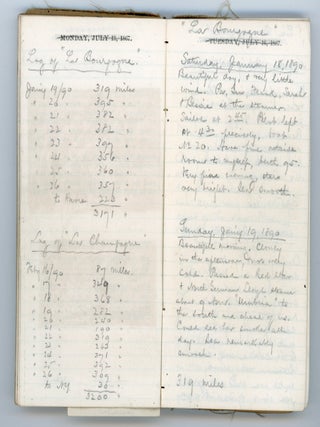 MONDAY, JULY 15, 1867.
Log of "La Bourgogne"
Jan'y 19/90 319 miles
" 20 395 "
" 21 382 "
" 22 382 "
" 23 399 "
" 24 356 "
" 25 360 "
" 26 357 "
to Havre 220 "
3171 "
Log of "La Champagne"
Feb'y 16/90 87 miles
" 17 349 "
" 18 368 "
" 19 252 "
" 20 250 "
" 21 190 "
" 22 319 "
" 23 "
" 24 391 "
" 25 392 "
" 26 309 "
to NY "
3200 "
"La Bourgogne"
TUESDAY, JULY 16, 1867.
Saturday, January 18, 1890.
Beautiful day, & very little
wind. Pa, Frank, Sarah
& Bessie at the steamer.
Sailor at Pilot left
at precisely, boat
No 20. Have fine outside
room to myself, berth 95.
Very fine evening, stars
very bright. Sea smooth.
Sunday, Jan'y 19, 1890
Beautiful morning. Cloudy
in the afternoon & not very
cold. Passed a Red Star
& North German Lloyd steamer
also
to the south and ahead of us.
Could see her smoke all
day. Sea remarkably
smooth.
319 miles